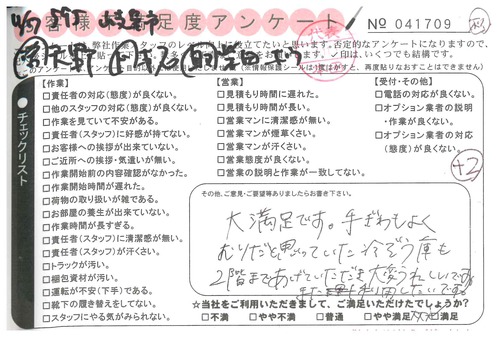 お客様満足度アンケート
No 041709
【作業】
□責任者の対応(態度)が良くない。
□他のスタッフの対応(態度)が良くない。
□作業を見ていて不安がある。
□責任者(スタッフ)に好感が持てない。
□お客様への挨拶が出来ていない。
□ご近所への挨拶・気遣いが無い。
□作業開始前の内容確認がなかった。
□作業開始時間が遅れた。
□荷物の取り扱いが雑である。
□お部屋の養生が出来ていない。
□作業時間が長すぎる。
□責任者(スタッフ)に清潔感が無い。
□責任者(スタッフ)が汗くさい。
□トラックが汚い。
□梱包資材が汚い。
□運転が不安(下手)である。
□靴下の履き替えをしてない。
□スタッフにやる気がみられない。
チェックリスト
【営業】
□見積もり時間に遅れた。
□見積もり時間が長い。
□営業マンに清潔感が無い。
□営業マンが煙草くさい。
□営業マンが汗くさい。
□営業態度が良くない。
□営業の説明と作業が一致してない。
【受付・その他】
□電話の対応が良くない。
□オプション業者の説明
・作業が良くない。
□オプション業者の対応
(態度)が良くない。
+2
その他、ご意見・ご要望等ありましたらお書き下さい。
大満足です。手ぎわもよく
むりだと思っていた冷ぞう庫も
2階まであげていただき大変うれしいです。
また利用したいです。
☆当社をご利用いただきまして、ご満足いただけたでしょうか?
□不満 □やや不満 □普通 □やや満足 □満足